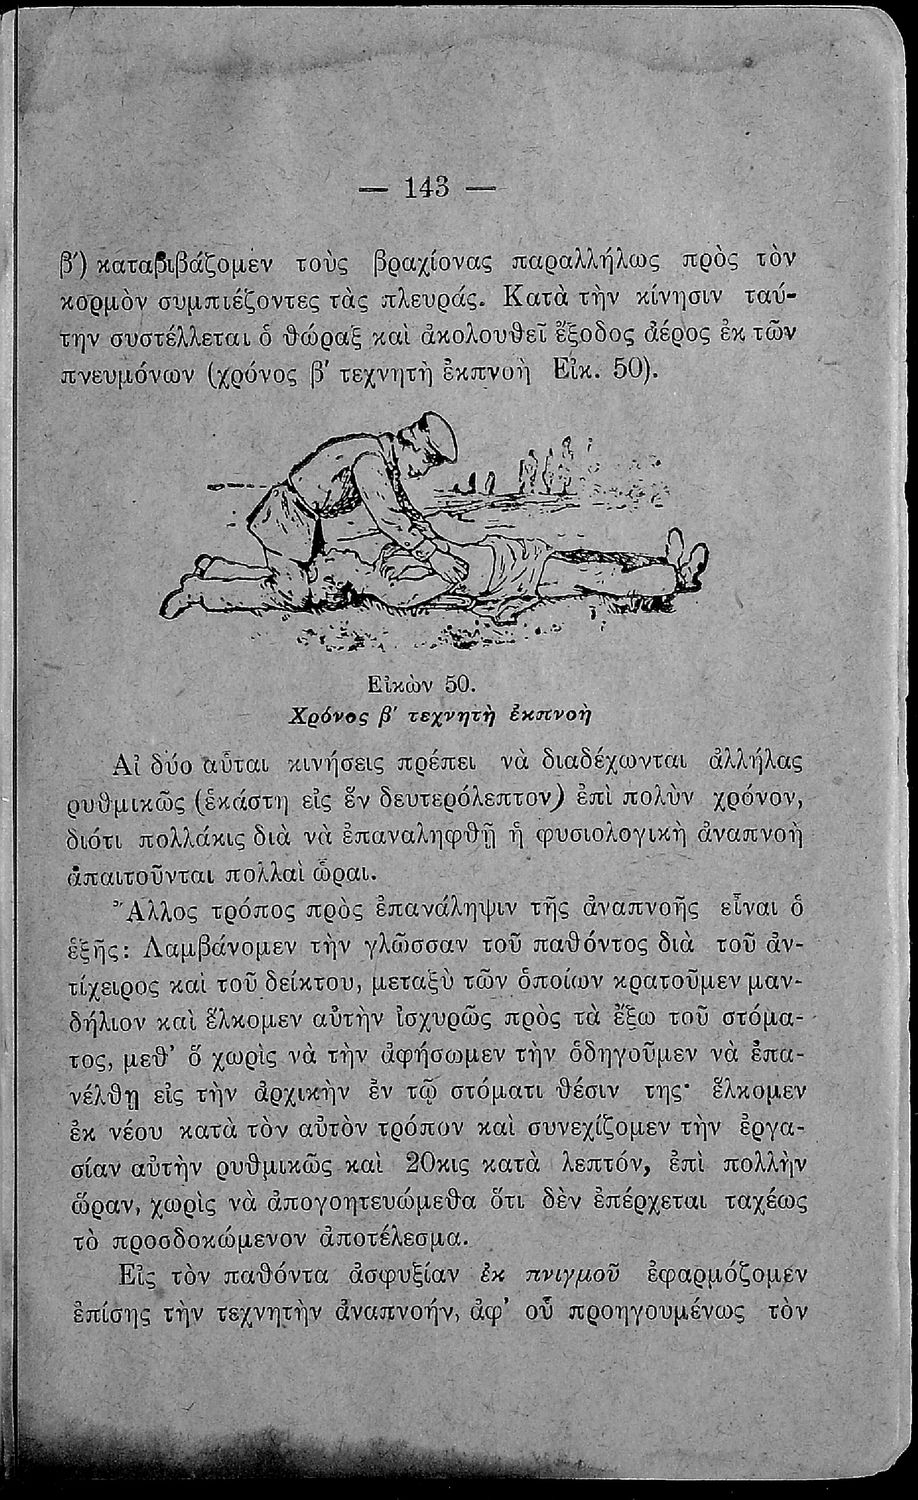 — 143 —
β′) καταβιβάζομεν τοὺς βραχίονας παραλλήλως πρὸς τὸν
κορμὸν συμπιέζοντες τὰς πλευράς. Κατὰ τὴν κίνησιν ταύ-
την συστέλλεται ὁ θώραξ καὶ ἀκολουθεῖ ἔξοδος ἀέρος ἐκ τῶν
πνευμόνων (χρόνος β′ τεχνητὴ ἐκπνοὴ Εἰκ. 50).
Εἰκὼν 50.
Χρόνος β′ τεχνητὴ ἐκπνοὴ
Αἱ δύο αὗται κινήσεις πρέπει νὰ διαδέχωνται ἀλλήλας
ρυθμικῶς (ἑκάστη εἰς ἓν δευτερόλεπτον) ἐπὶ πολὺν χρόνον,
διότι πολλάκις διὰ νὰ ἐπαναληφθῇ ἡ φυσιολογικὴ ἀναπνοὴ
ἀπαιτοῦνται πολλαὶ ὧραι.
Ἄλλος τρόπος πρὸς ἐπανάληψιν τῆς ἀναπνοῆς εἶναι ὁ
ἑξῆς: Λαμβάνομεν τὴν γλῶσσαν τοῦ παθόντος διὰ τοῦ ἀν-
τίχειρος καὶ τοῦ δείκτου, μεταξὺ τῶν ὁποίων κρατοῦμεν μαν-
δήλιον καὶ ἕλκομεν αὐτὴν ἰσχυρῶς πρὸς τὰ ἔξω τοῦ στόμα-
τος, μεθ’ ὃ χωρὶς νὰ τὴν ἀφήσωμεν τὴν ὁδηγοῦμεν νὰ ἐπα-
νέλθῃ εἰς τὴν ἀρχικὴν ἐν τῷ στόματι θέσιν της· ἕλκομεν
ἐκ νέου κατὰ τὸν αὐτὸν τρόπον καὶ συνεχίζομεν τὴν ἐργα-
σίαν αὐτὴν ρυθμικῶς καὶ 20κις κατὰ λεπτόν, ἐπὶ πολλὴν
ὥραν, χωρὶς νὰ ἀπογοητευώμεθα ὅτι δὲν ἐπέρχεται ταχέως
τὸ προσδοκώμενον ἀποτέλεσμα.
Εἰς τὸν παθόντα ἀσφυξίαν ἐκ πνιγμοῦ ἐφαρμόζομεν
ἐπίσης τὴν τεχνητὴν ἀναπνοήν, ἀφ’ οὗ προηγουμένως τὸν